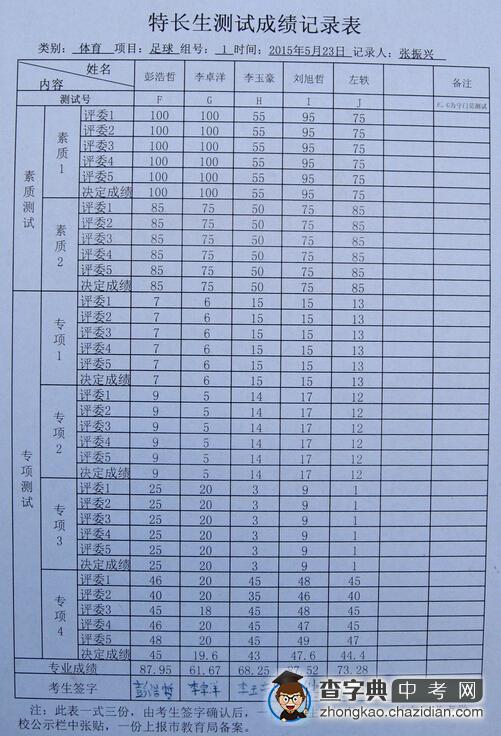 特长生测试成绩记录表
类别： 体育 项目：足球 组号： 1 时间：2015年5月23日 记录人：张振兴
姓名 彭浩哲 李卓洋 李玉豪 刘旭哲 左轶 备注
内容
测试号 F G H I J F、G为守门员测试
素质测试
素质1
评委1 100 100 55 95 75
评委2 100 100 55 95 75
评委3 100 100 55 95 75
评委4 100 100 55 95 75
评委5 100 100 55 95 75
决定成绩 100 100 55 95 75
素质2
评委1 85 75 50 75 85
评委2 85 75 50 75 85
评委3 85 75 50 75 85
评委4 85 75 50 75 85
评委5 85 75 50 75 85
决定成绩 85 75 50 75 85
专项测试
专项1
评委1 7 6 15 15 13
评委2 7 6 15 15 13
评委3 7 6 15 15 13
评委4 7 6 15 15 13
评委5 7 6 15 15 13
决定成绩 7 6 15 15 13
专项2
评委1 9 5 14 17 12
评委2 9 5 14 17 12
评委3 9 5 14 17 12
评委4 9 5 14 17 12
评委5 9 5 14 17 12
决定成绩 9 5 14 17 12
专项3
评委1 25 20 3 9 1
评委2 25 20 3 9 1
评委3 25 20 3 9 1
评委4 25 20 3 9 1
评委5 25 20 3 9 1
决定成绩 25 20 3 9 1
专项4
评委1 46 20 45 48 45
评委2 40 20 35 46 40
评委3 45 18 45 48 45
评委4 46 20 45 47 45
评委5 48 20 45 49 47
决定成绩 45 19.6 43 47.6 44.4
专业成绩 87.95 61.67 68.25 7.52 73.28
考生签字 彭浩哲 李卓洋
注：此表一式三份，由考生签字确认后，一
校公示栏中张贴，一份上报市教育局备案。
查字典 中考网
zhongkao.chazidian.com